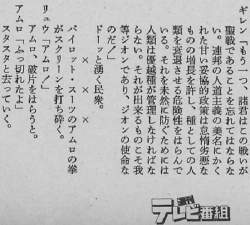 ギレン「もう一つ、諸君はこの戦いが
聖戦であることを忘れてはならな
い。連邦の人道主義の美名にかく
れた甘い妥協的政策は怠惰劣悪な
ものの増長を許し、種としての人
類を衰退させる危険性をはらんで
いる。それを未然に防ぐためには
人類は優越種が管理しなければな
らない。それが出来るものこそ我
等ジオンであり、ジオンの使命な
のだ！」
ドーッと湧く民衆。
× × ×
パイロット・スーツのアムロの拳
がスクリーンを打ち砕く。
リュウ「アムロ！」
アムロ、破片をはらうと。
アムロ「ふっ切れたよ」
スタスタと去っていく。
テレビ番組